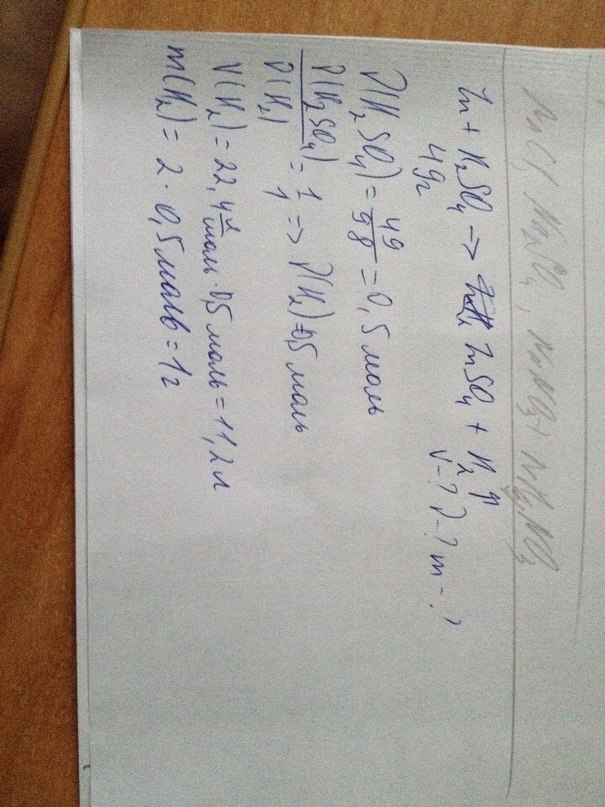 Zn + H₂SO₄ → ZnSO₄ + H₂↑
49г V-? ν-? m-?
ν(H₂SO₄) = 49/98 = 0,5 моль
ν(H₂SO₄)/ν(H₂) = 1/1 => ν(H₂)=0,5 моль
V(H₂) = 22,4 л/моль · 0,5 моль = 11,2 л
m(H₂) = 2 · 0,5 моль = 1г